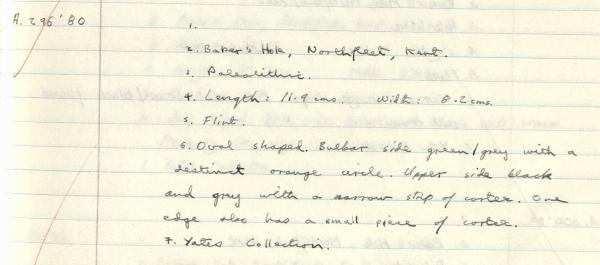 A. 296 '80
1.
2. Baker's Hole, Northfleet, Kent.
3. Paleolithic.
4. Length: 11.9 cms. Width: 8.2 cms.
5. Flint.
6. Oval shaped. Bulbar side green/grey with a
distinct orange circle. Upper side black
and grey with a narrow strip of cortex. One
edge also has a small piece of cortex.
7. Yates Collection.